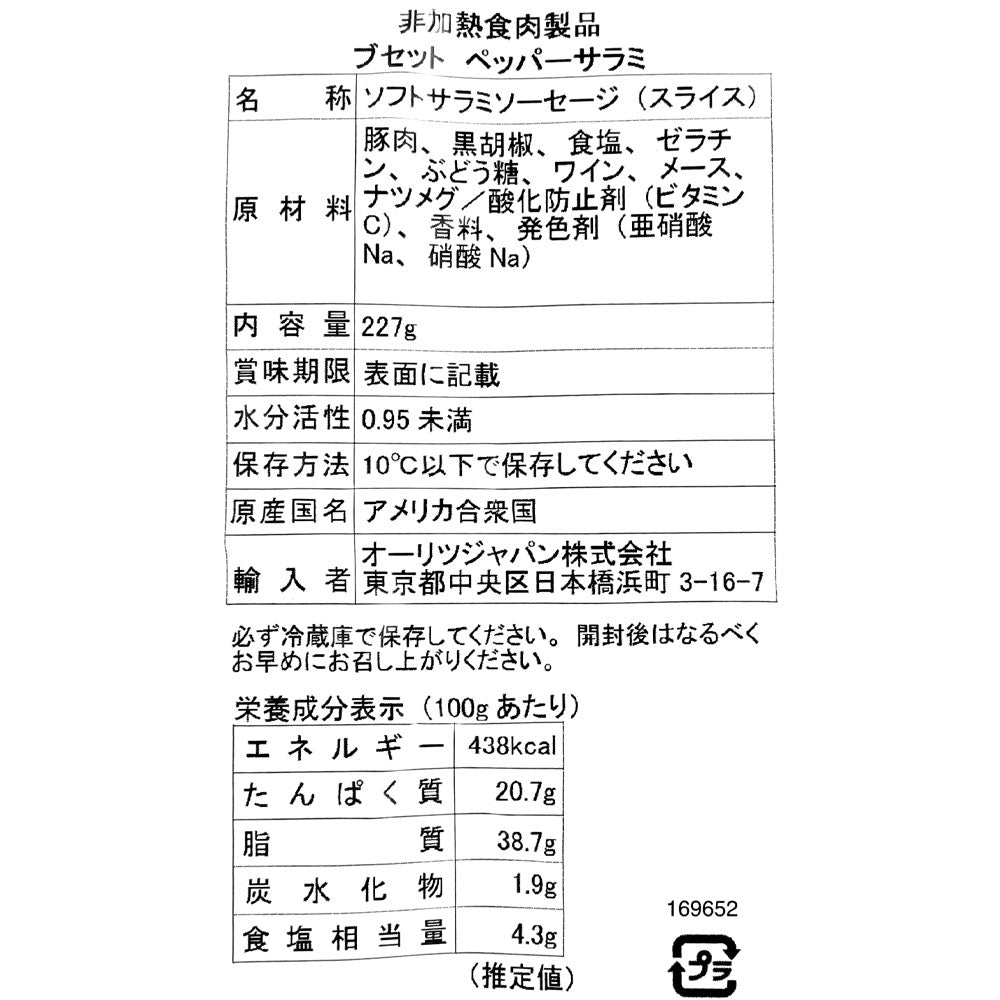 非加熱食肉製品
ブセット ペッパーサラミ
名称 ソフトサラミソーセージ（スライス）
原材料 豚肉、黒胡椒、食塩、ゼラチ
ン、ぶどう糖、ワイン、メース、
ナツメグ／酸化防止剤（ビタミン
C）、香料、発色剤（亜硝酸
Na、硝酸Na）
内容量 227g
賞味期限 表面に記載
水分活性 0.95未満
保存方法 10℃以下で保存してください
原産国名 アメリカ合衆国
輸入者 オーリツジャパン株式会社
東京都中央区日本橋浜町 3-16-7
必ず冷蔵庫で保存してください。開封後はなるべく
お早めにお召し上がりください。
栄養成分表示（100gあたり）
エネルギー 438kcal
たんぱく質 20.7g
脂質 38.7g
炭水化物 1.9g
食塩相当量 4.3g
（推定値）
169652
プラ